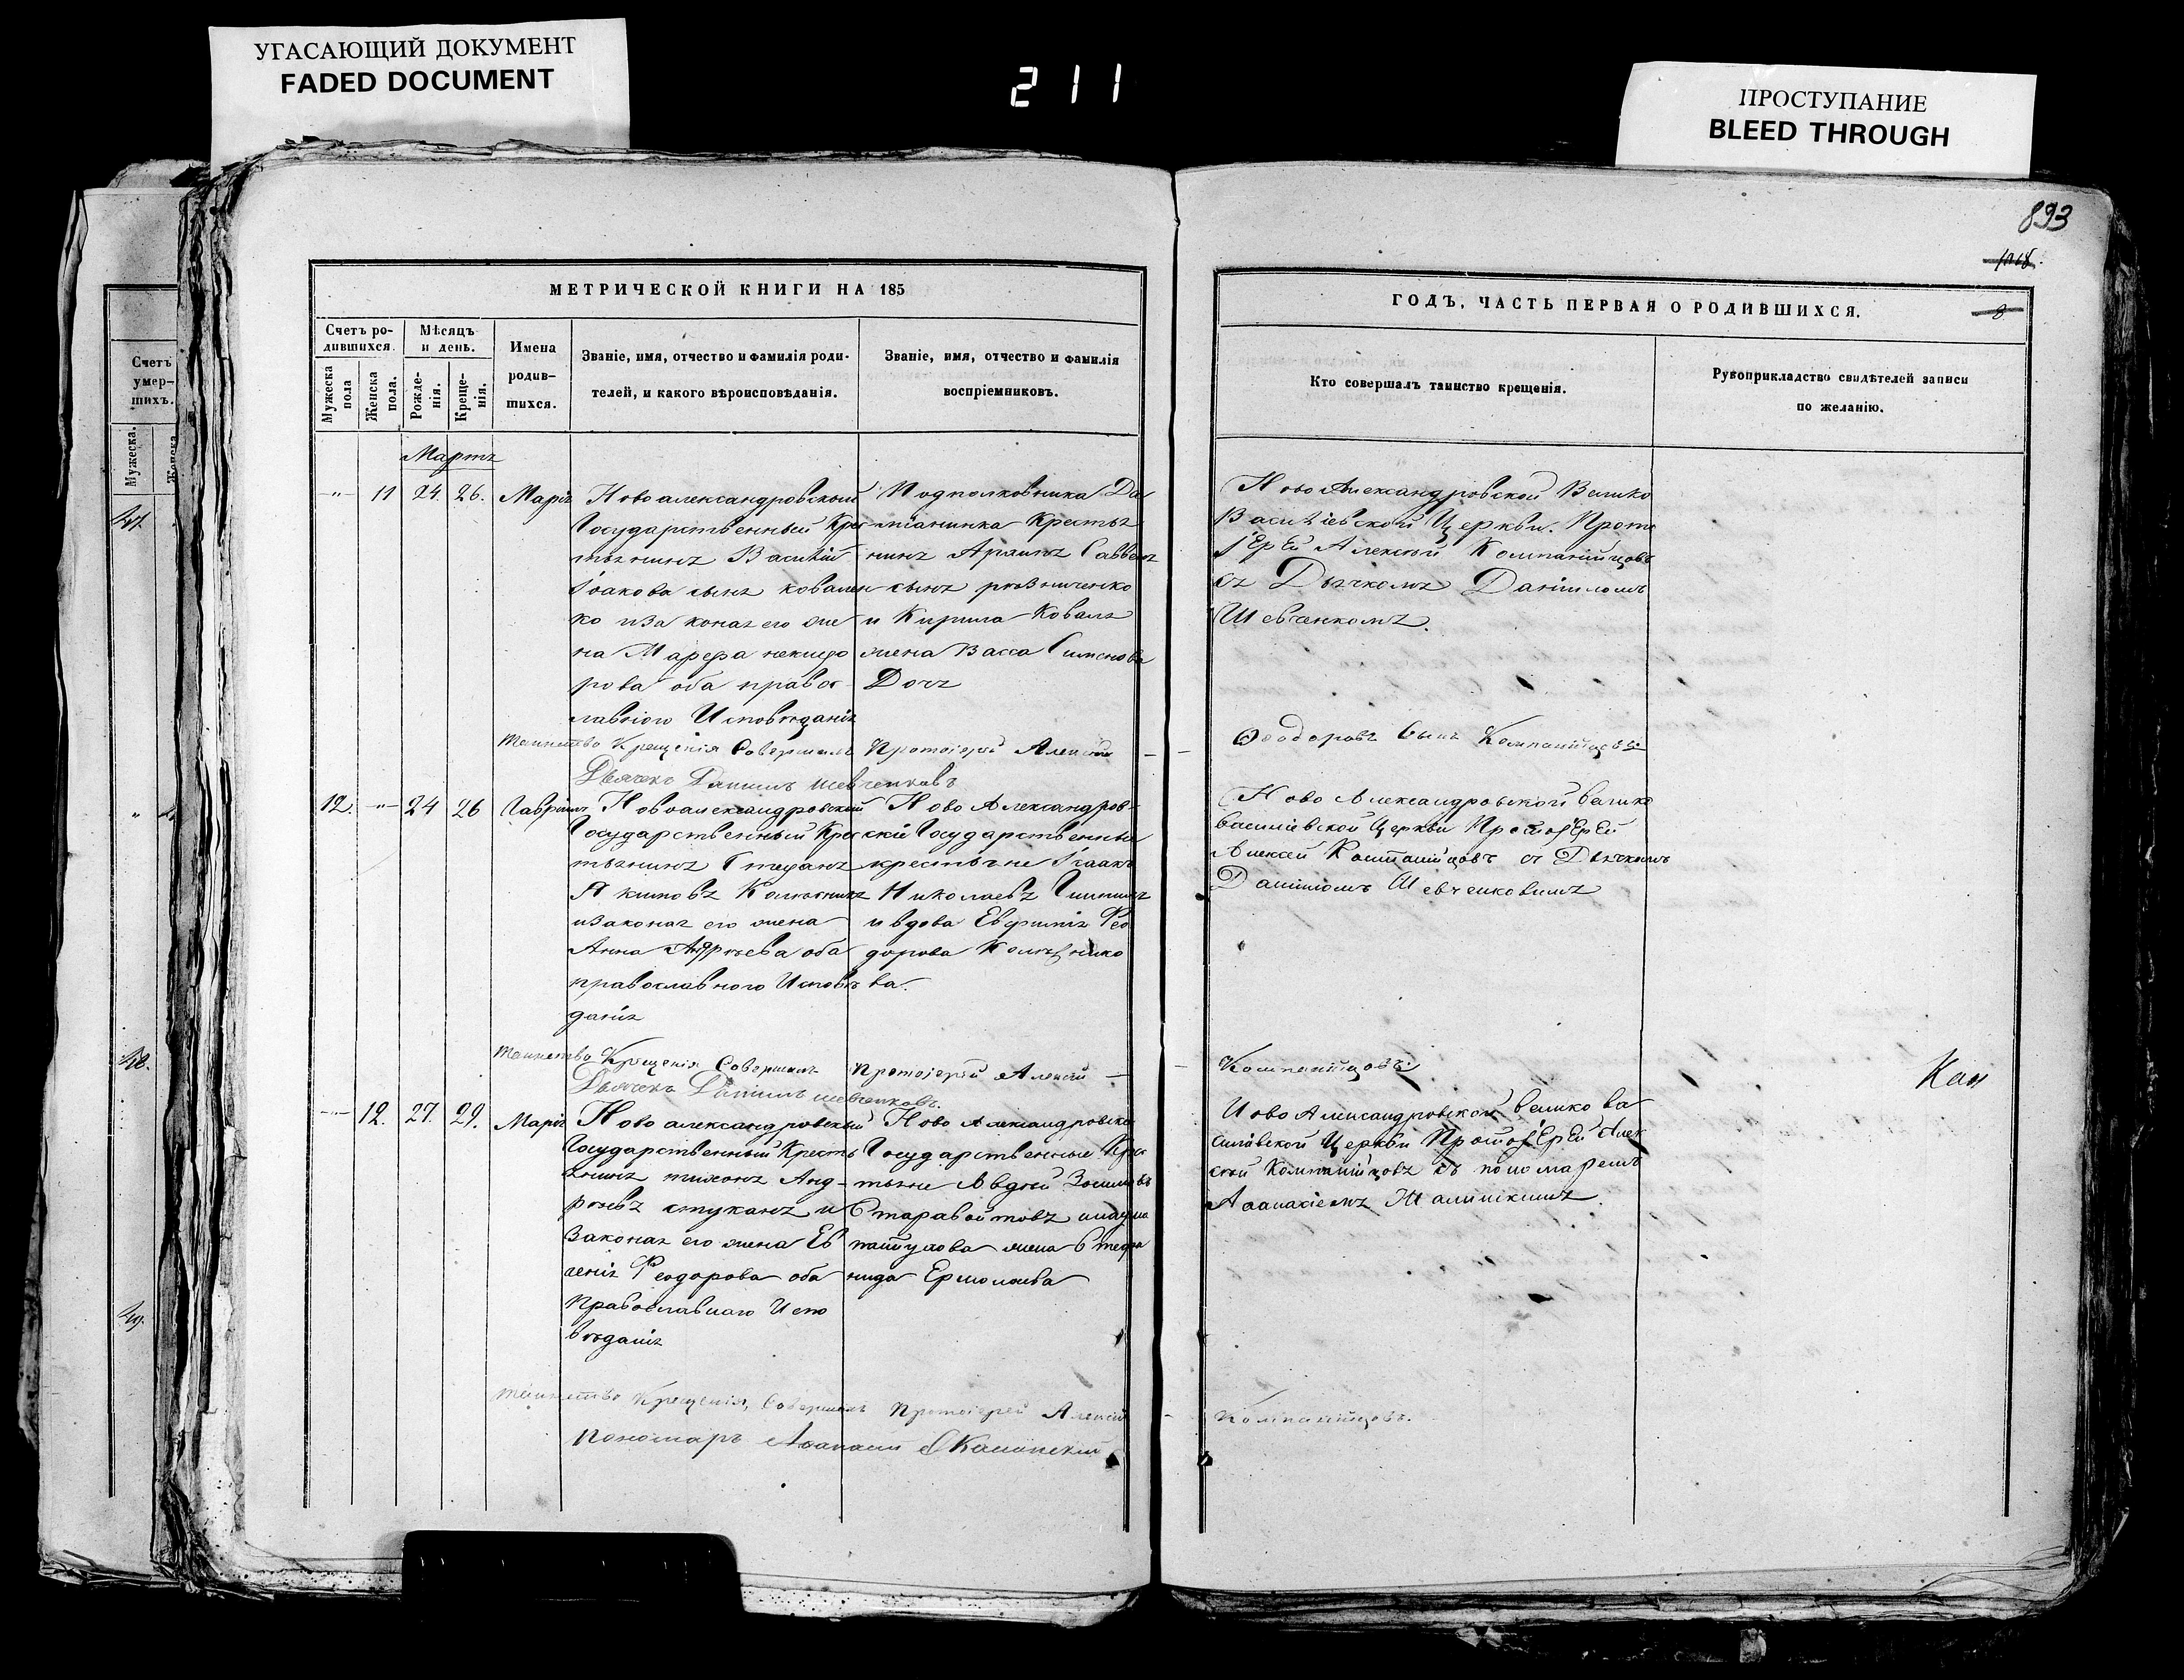 УГАСАЮЩИЙ ДОКУМЕНТ
FADED DOCUMENT
211
ПРОСТУПАНИЕ
BLEED THROUGH
893
8
Счетъ
умер-
шихъ.
Мужеска.
Женска
47.
48.
49.
МЕТРИЧЕСКОЙ КНИГИ НА 185
Счетъ ро-
дившихся.
Мужеска
пола
Женска
пола.
Мѣсяцъ
и день.
Рожде-
нія.
Креще-
нія.
Имена
родив-
шихся.
Званіе, имя, отчество и фамилія роди-
телей, и какого вѣроисповѣданія.
Званіе, имя, отчество и фамилія
воспріемниковъ.
ГОДЪ, ЧАСТЬ ПЕРВАЯ О РОДИВШИХСЯ.
Кто совершалъ таинство крещенія.
Рукоприкладство свидѣтелей записи
по желанію.
Мартъ
-"- 11 24. 26. Марія
Новоалександровскый
Государственный Крес
тьянинъ Василій
Іоакова сынъ ковален
ко иза коная его же
на Марефа никидо
рова оба правос
лавного Исповѣданія
Подполковника Да
Крестья
нинъ Савве
сынъ рѣзниченко
и Кирила Коваля
жена Васса Симонова
Дочь
Ново Александровской Велико
Василіевской Церкви. Прото
ІЕрЕй Алексѣй Компанійцовъ
съ Дьячкомъ Даніиломъ
Шевченкомъ.
таинство Крещенія Совершалъ Протоіерей Алексій
Ѳеодоровъ Сынъ Компанійцовъ
Дьячекъ Даниилъ шевченковъ
12. -"- 24 26 Гавріилъ
Новоалександровский
Государственный Крес
тьянинъ Стефанъ
Акимовъ
изаконая его жена
Анна Андрѣева оба
православного Исповѣ
данія
Ново Александров
скіе Государственные
крестьяне Ісаакъ
Николаевъ
и вдова Евфимія Ѳео
дорова
ва.
Ново Александровской велико
василіевской Церкви ПротоіЕрЕй
Алексей Компанійцовъ съ Дьячкомъ
Даніиломъ Шевченковимъ
таинство Крещенія Совершалъ Протоіерей Алексій
Компанійцовъ
Дьячекъ Даніилъ шевченковъ.
Кан
-"- 12. 27. 29. Марія
Новоалександровский
Государственный Кресть
янинъ тихонъ Анд-
рѣевъ стуканъ и
Законая его жена Ев
генія Ѳеодорова оба
Православнаго Испо
вѣданія
Ново Александровско
Государственные Крес
тьяне Авдѣй
Старавойтовъ
жена Стефа
нида Ермолаева
Ново Александровской велико ва
силіевской Церкви ПротоіЕрЕй Алек
сѣй Компанійцовъ съ пономаремъ
Аѳанасіемъ
таинство Крещенія, Совершалъ Протоіерей Алексій
Компанійцовъ.
пономарь Аѳанасій